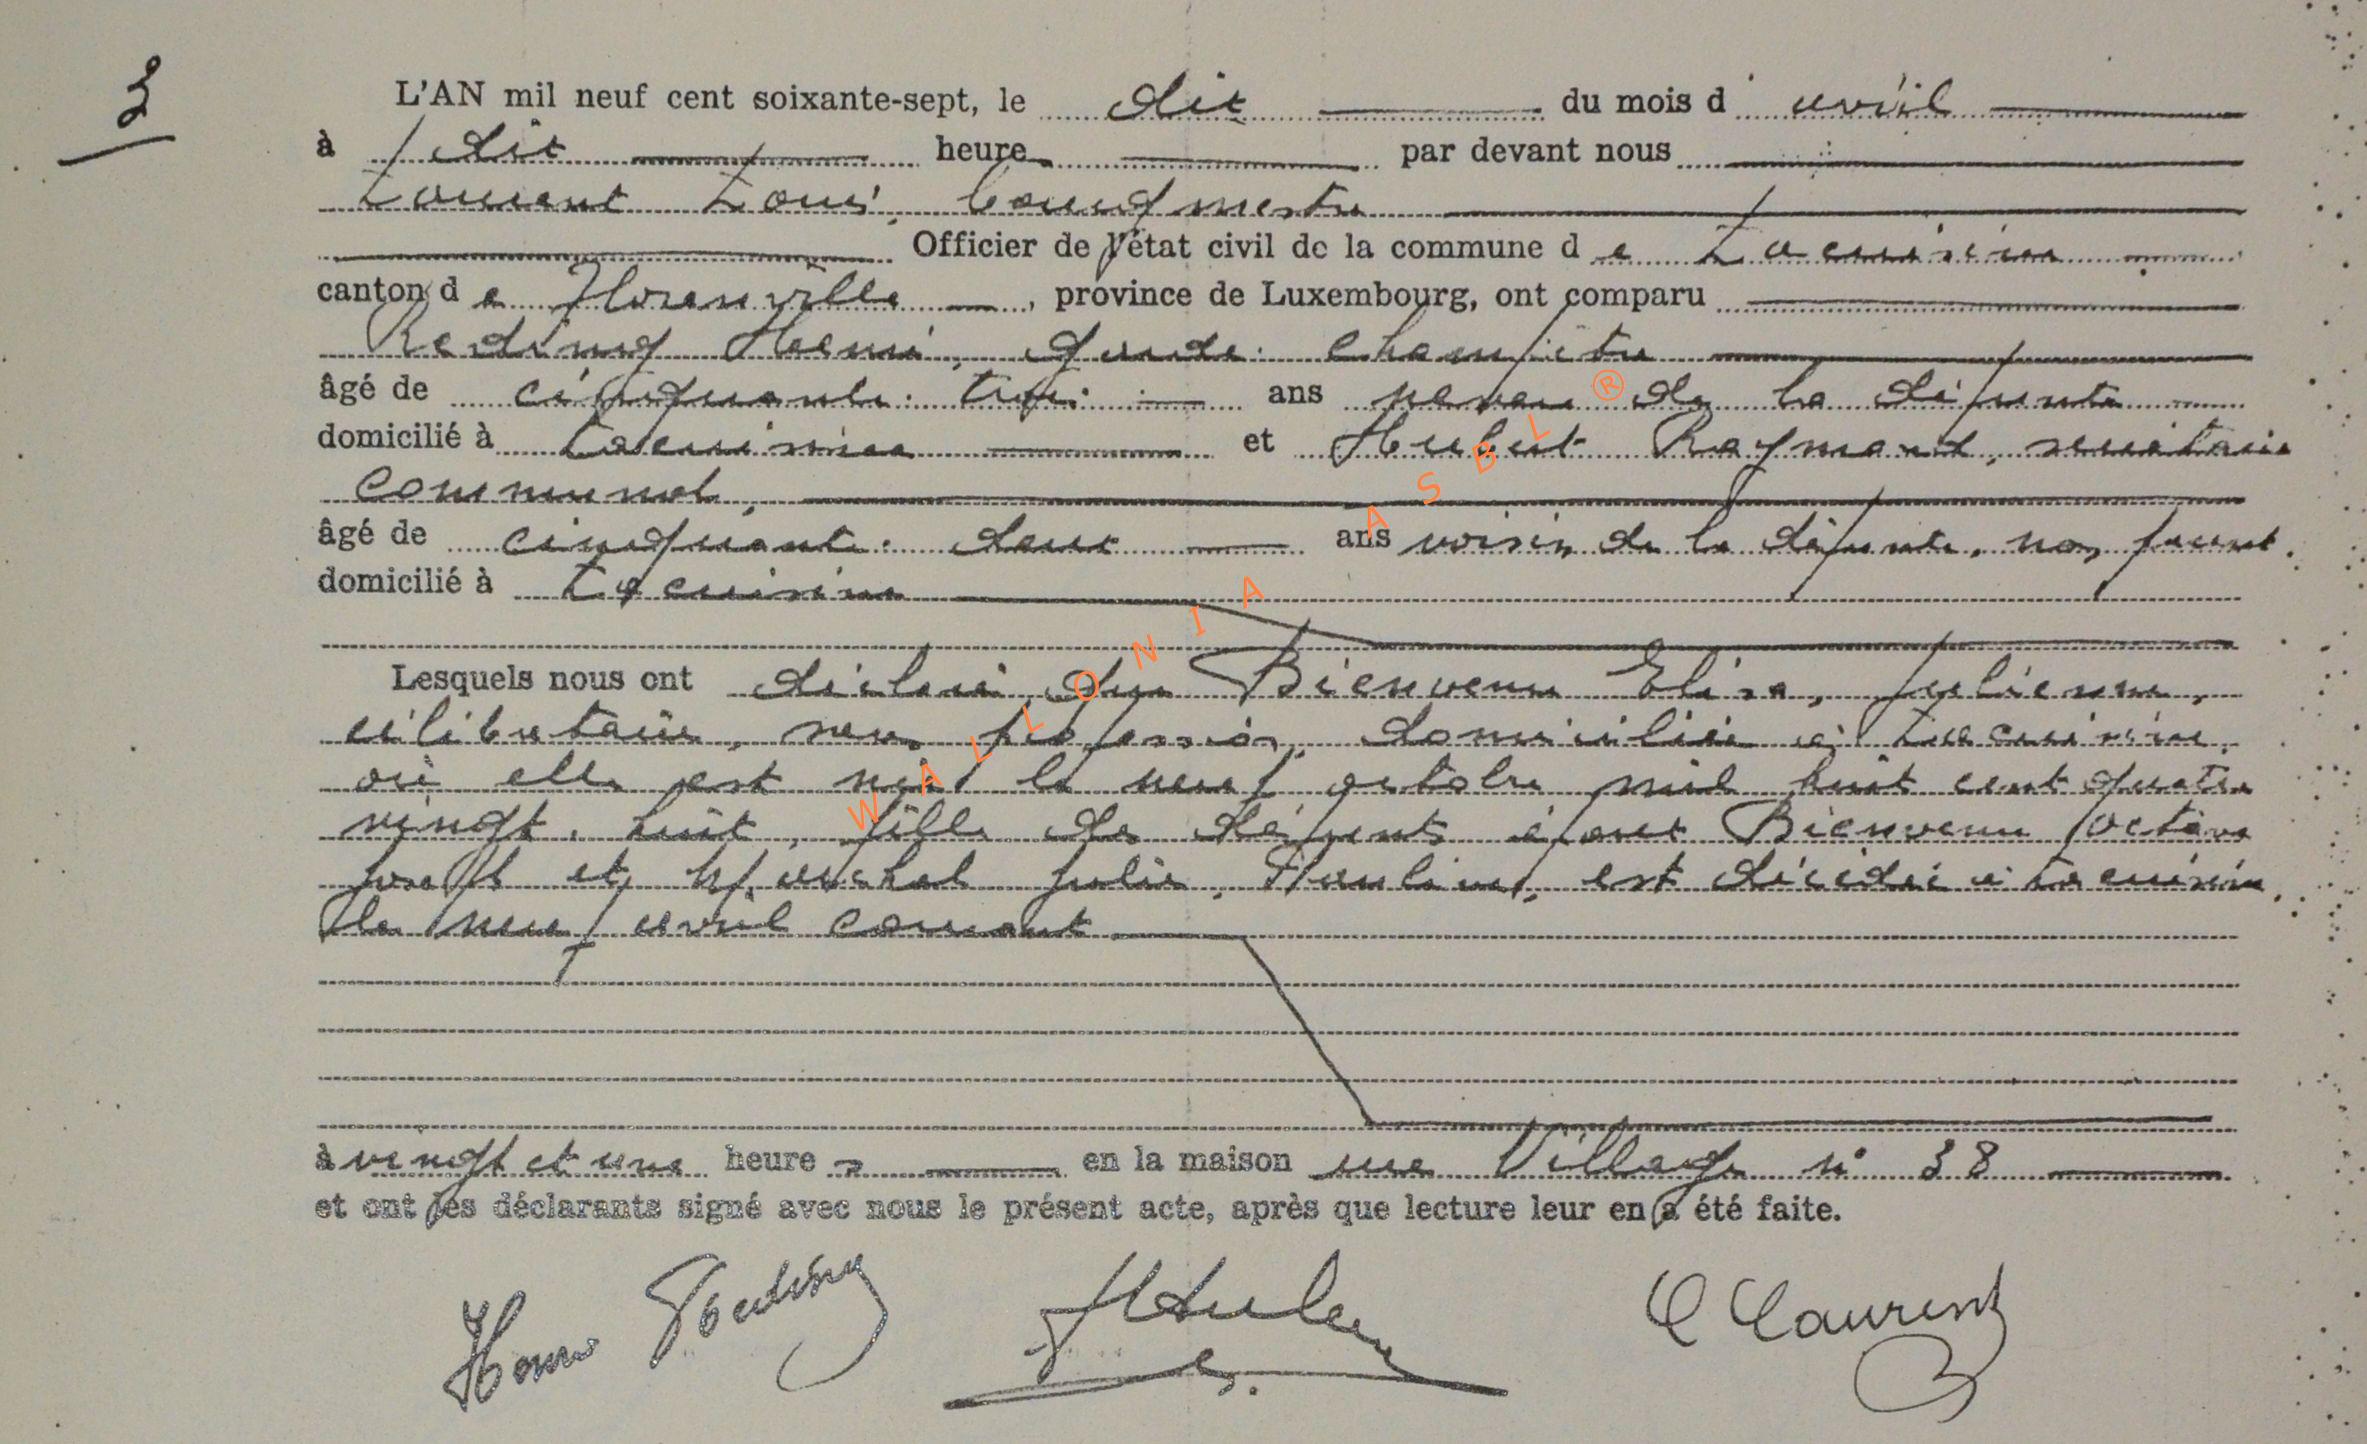 3
L'AN mil neuf cent soixante-sept, le dix du mois d'avril
à dix heures par devant nous
Laurent Louis, bourgmestre
Officier de l'état civil de la commune de Lacuisine
canton de Florenville, province de Luxembourg, ont comparu
Reding Henri, garde-champêtre
âgé de cinquante-trois ans neveu de la défunte
domicilié à Lacuisine et Hubert Raymond, secrétaire
communal,
âgé de cinquante-deux ans voisin de la défunte, non parent.
domicilié à Lacuisine
Lesquels nous ont déclaré que Bienvenu Elisa, Julienne,
célibataire, sans profession, domiciliée à Lacuisine
où elle est née le neuf octobre mil huit cent quatre
vingt-huit, fille des défunts époux Bienvenu Octave
Joseph et Julie, Pauline, est décédée à Lacuisine,
le neuf avril courant
à vingt et une heures en la maison rue Village n° 38
et ont les déclarants signé avec nous le présent acte, après que lecture leur en a été faite.
Henri Reding L Laurent
WALLONIA ASBL ®